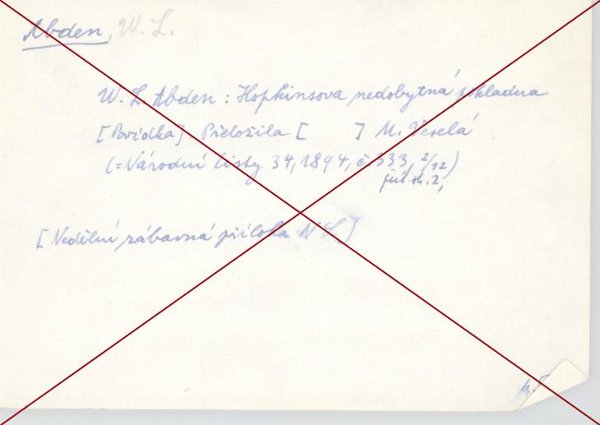 Abden, W. L.
W. L. Abden: Hopkinsova nedobytná pokladna
[Povídka] Přeložila [ ] M. Veselá
(=Národní listy 34, 1894, č. 333, 2/12)
[Nedělní zábavná příloha N L]